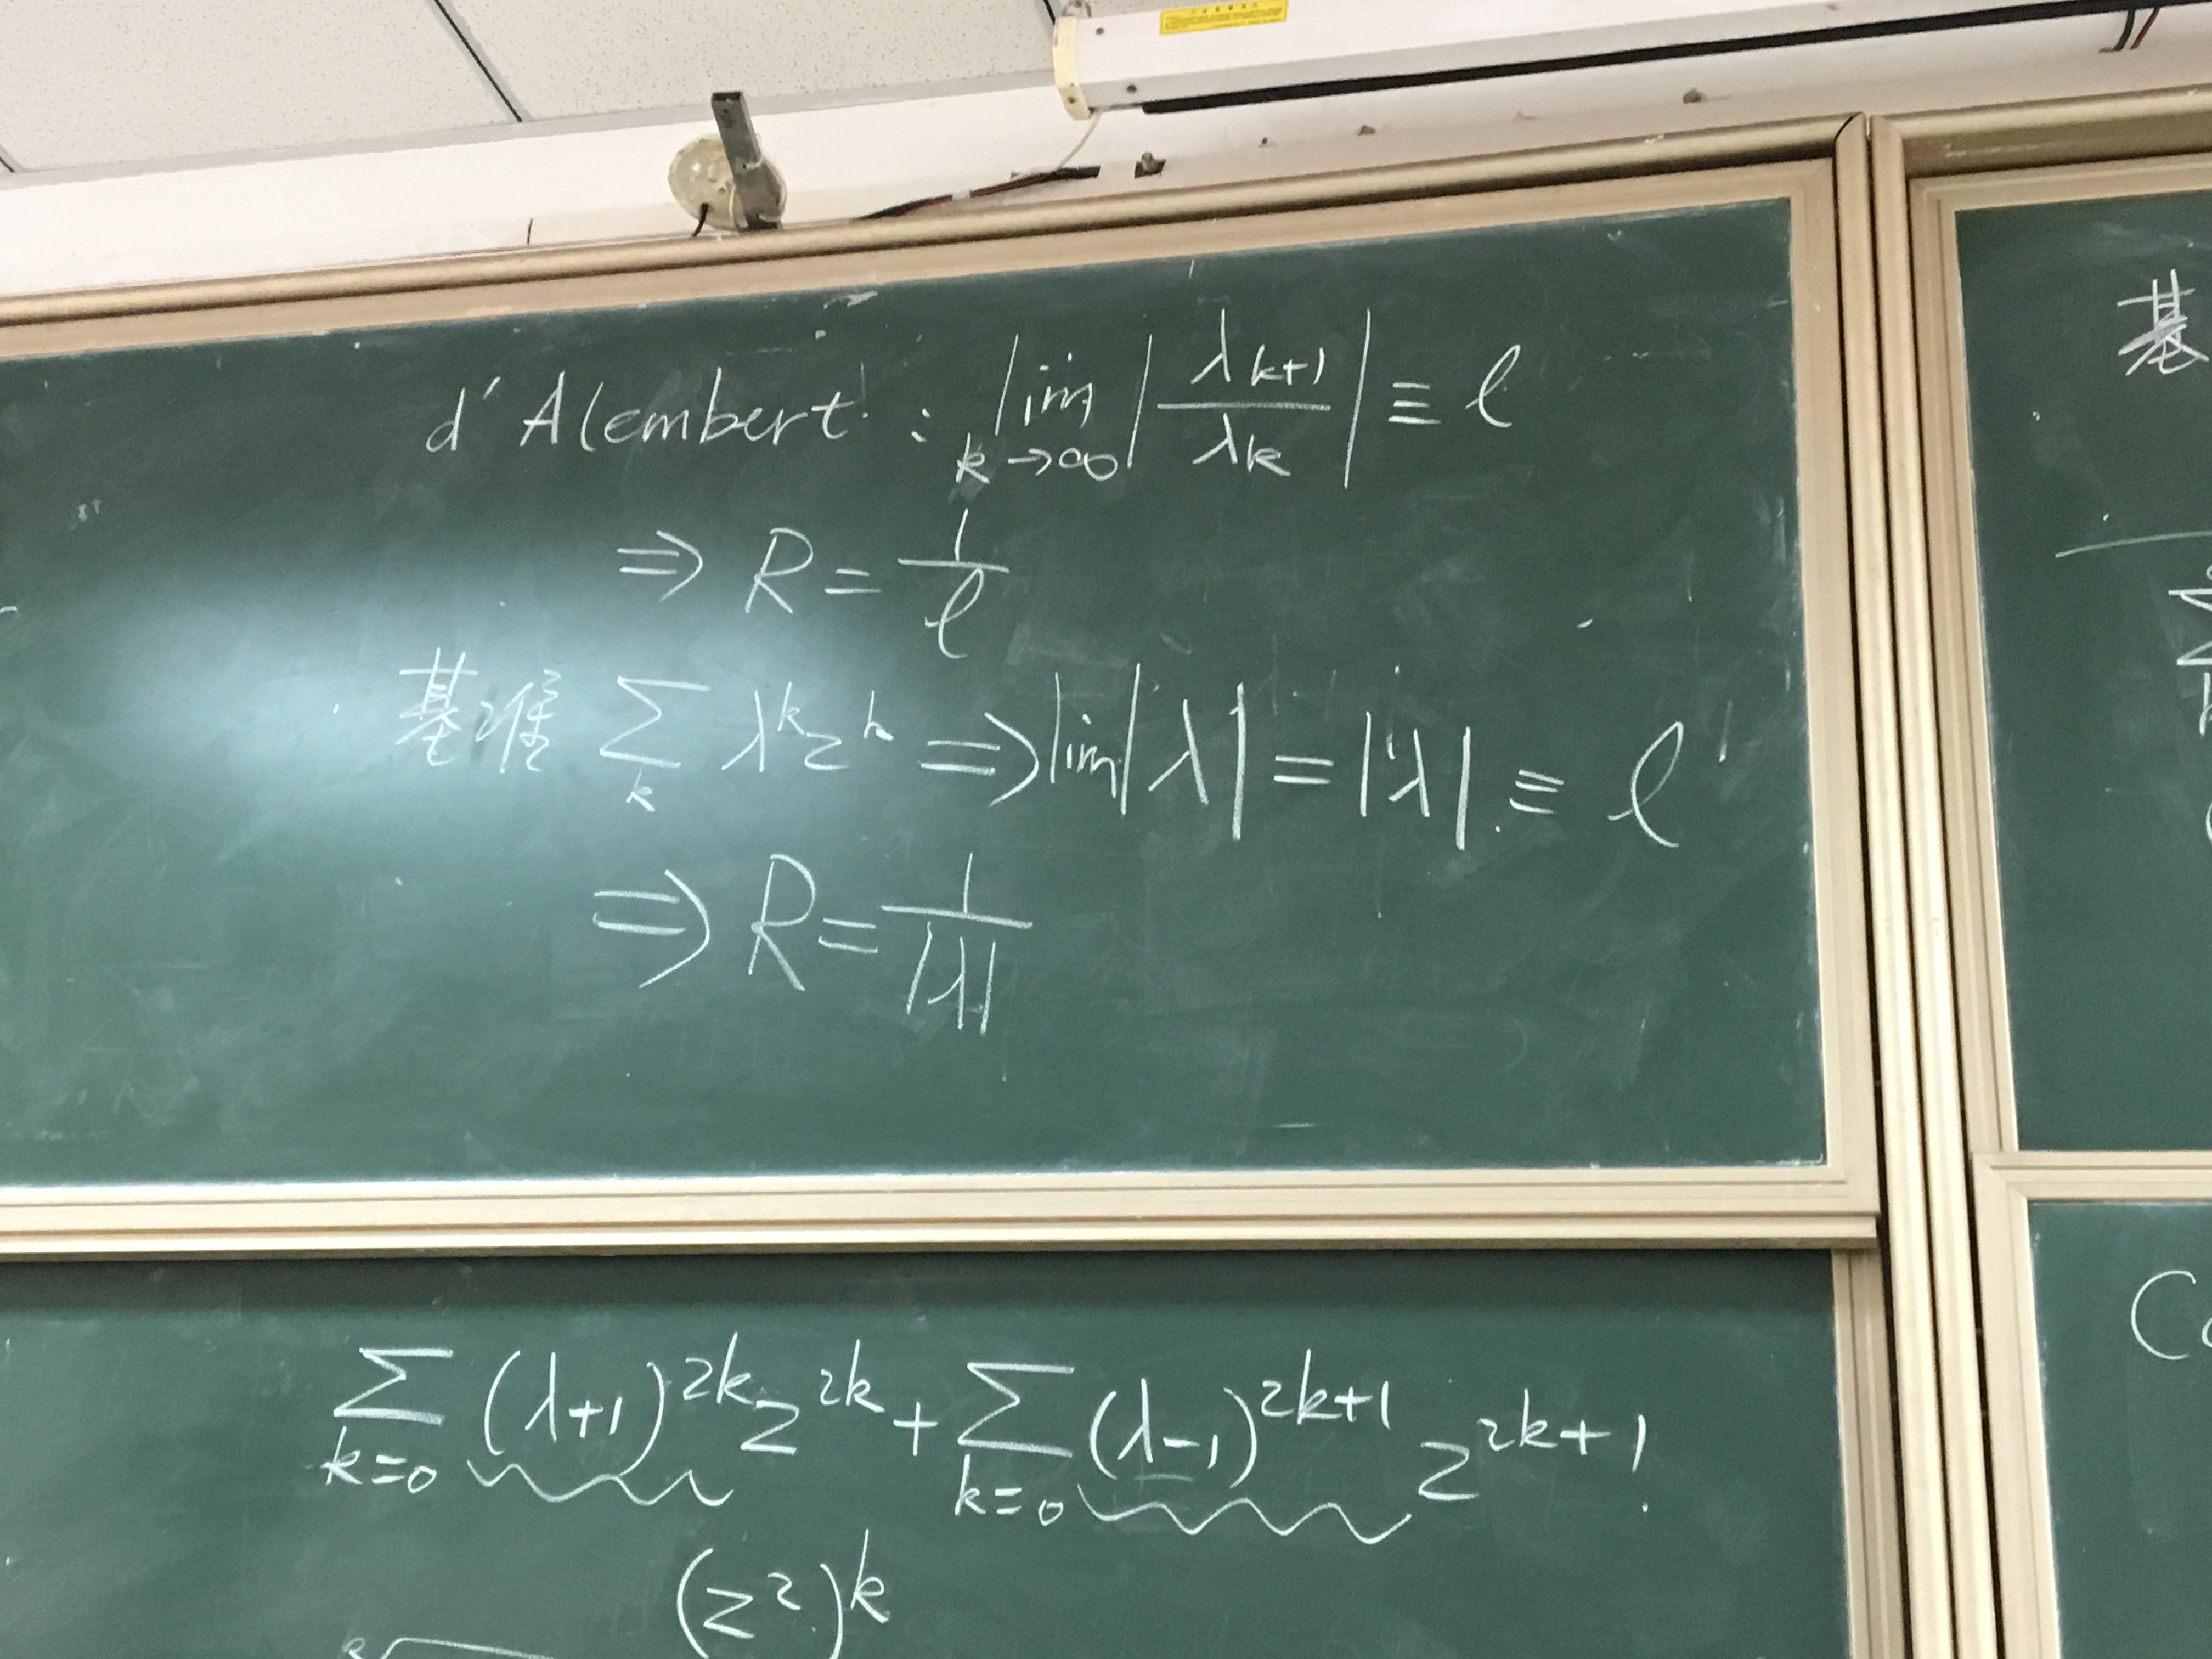 d'Alembert : lim k→∞ | λk+1 / λk | ≡ ℓ
⇒ R = 1/ℓ
基准 ∑k λ^k z^k ⇒ lim|λ| = |λ| ≡ ℓ
⇒ R = 1/|λ|
∑k=0 (λ+1)^2k z^2k + ∑k=0 (λ-1)^2k+1 z^2k+1
(z^2)^k
基
∑